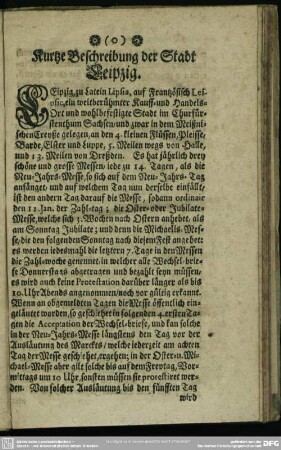 (o)
Kurtze Beschreibung der Stadt
Leipzig.
LEipzig, zu Latein Lipsia, auf Frantzösisch Lei-
psic, ein weitberühmter Kauff- und Handels-
Ort und wohlbefestigte Stadt im Churfür-
stenthum Sachsen, und zwar in dem Meißni-
schen Creyße gelegen, an den 4. kleinen Flüssen, Pleisse,
Barde, Elster und Luppe, 5. Meilen wegs von Halle,
und 13. Meilen von Dreßden. Es hat jährlich drey
schöne und grosse Messen, jede zu 14. Tagen, als die
Neu-Jahrs-Messe, so sich auf dem Neu-Jahrs-Tag
anfänget, und auf welchem Tag nun derselbe einfällt,
ist den andern Tag darauf die Messe, sodann ordinair
den 12. Jan. der Zahl-tag; die Oster- oder Jubilate-
Messe, welche sich 3. Wochen nach Ostern anhebet, als
am Sonntag Jubilate; und denn die Michaelis-Mes-
se, die den folgenden Sonntag nach diesem Fest angehet:
es werden iedesmahl die letztern 7. Tage in den Messen
die Zahl-woche genennet, in welcher alle Wechsel-brie-
fe Donnerstags abgetragen und bezahlt seyn müssen,
es wird auch keine Protestation darüber länger als bis
10. Uhr Abends angenommen, noch vor gültig erkannt.
Wenn an obgemeldten Tagen die Messe öffentlich ein-
geläutet worden, so geschiehet in folgenden 4. ersten Ta-
gen die Acceptation der Wechsel-briefe, und kan solche
in der Neu-Jahrs-Messe längstens den Tag vor der
Ausläutung des Marcktes, welche iederzeit am achten
Tag der Messe geschiehet, ergehen; in der Oster- u. Mi-
chael-Messe aber gilt solche bis auf dem Freytag, Vor-
mittags um 10 Uhr, sonsten müssen sie protestiret wer-
den. Von solcher Ausläutung bis den fünfften Tag
wird